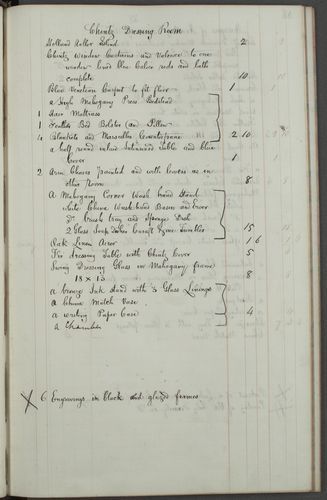 Chintz Dressing Room
Holland Roller Blind 2
Chintz Window Curtains and Valance to one
window lined Blue Calico rods and lath
complete 10
Blue Venetian Carpet to fit floor 1
a Single Mahogany Press Bedstead
1 Hair Mattress
1 Feather Bed Bolster and Pillow
4 Blankets and Marseilles Counterpane 2 10
a half round inlaid Table and Blue
Cover 1
2 Arm Chairs painted and with covers as in
other Room 8
A Mahogany Corner Wash hand Stand
White China Wash hand Basin and Ewer
Do Brush tray and Sponge Dish
2 Glass Soap 15
Oak Linen Airer 1 6
Fir dressing Table with Chintz Cover 5
Swing Dressing Glass in Mahogany frame
18 x 13 8
a bronze Ink stand with 3 Glass Linings
a China Match Vase
a writing Paper Case 4
a Chamber
X 6 Engravings in black and glazed frames